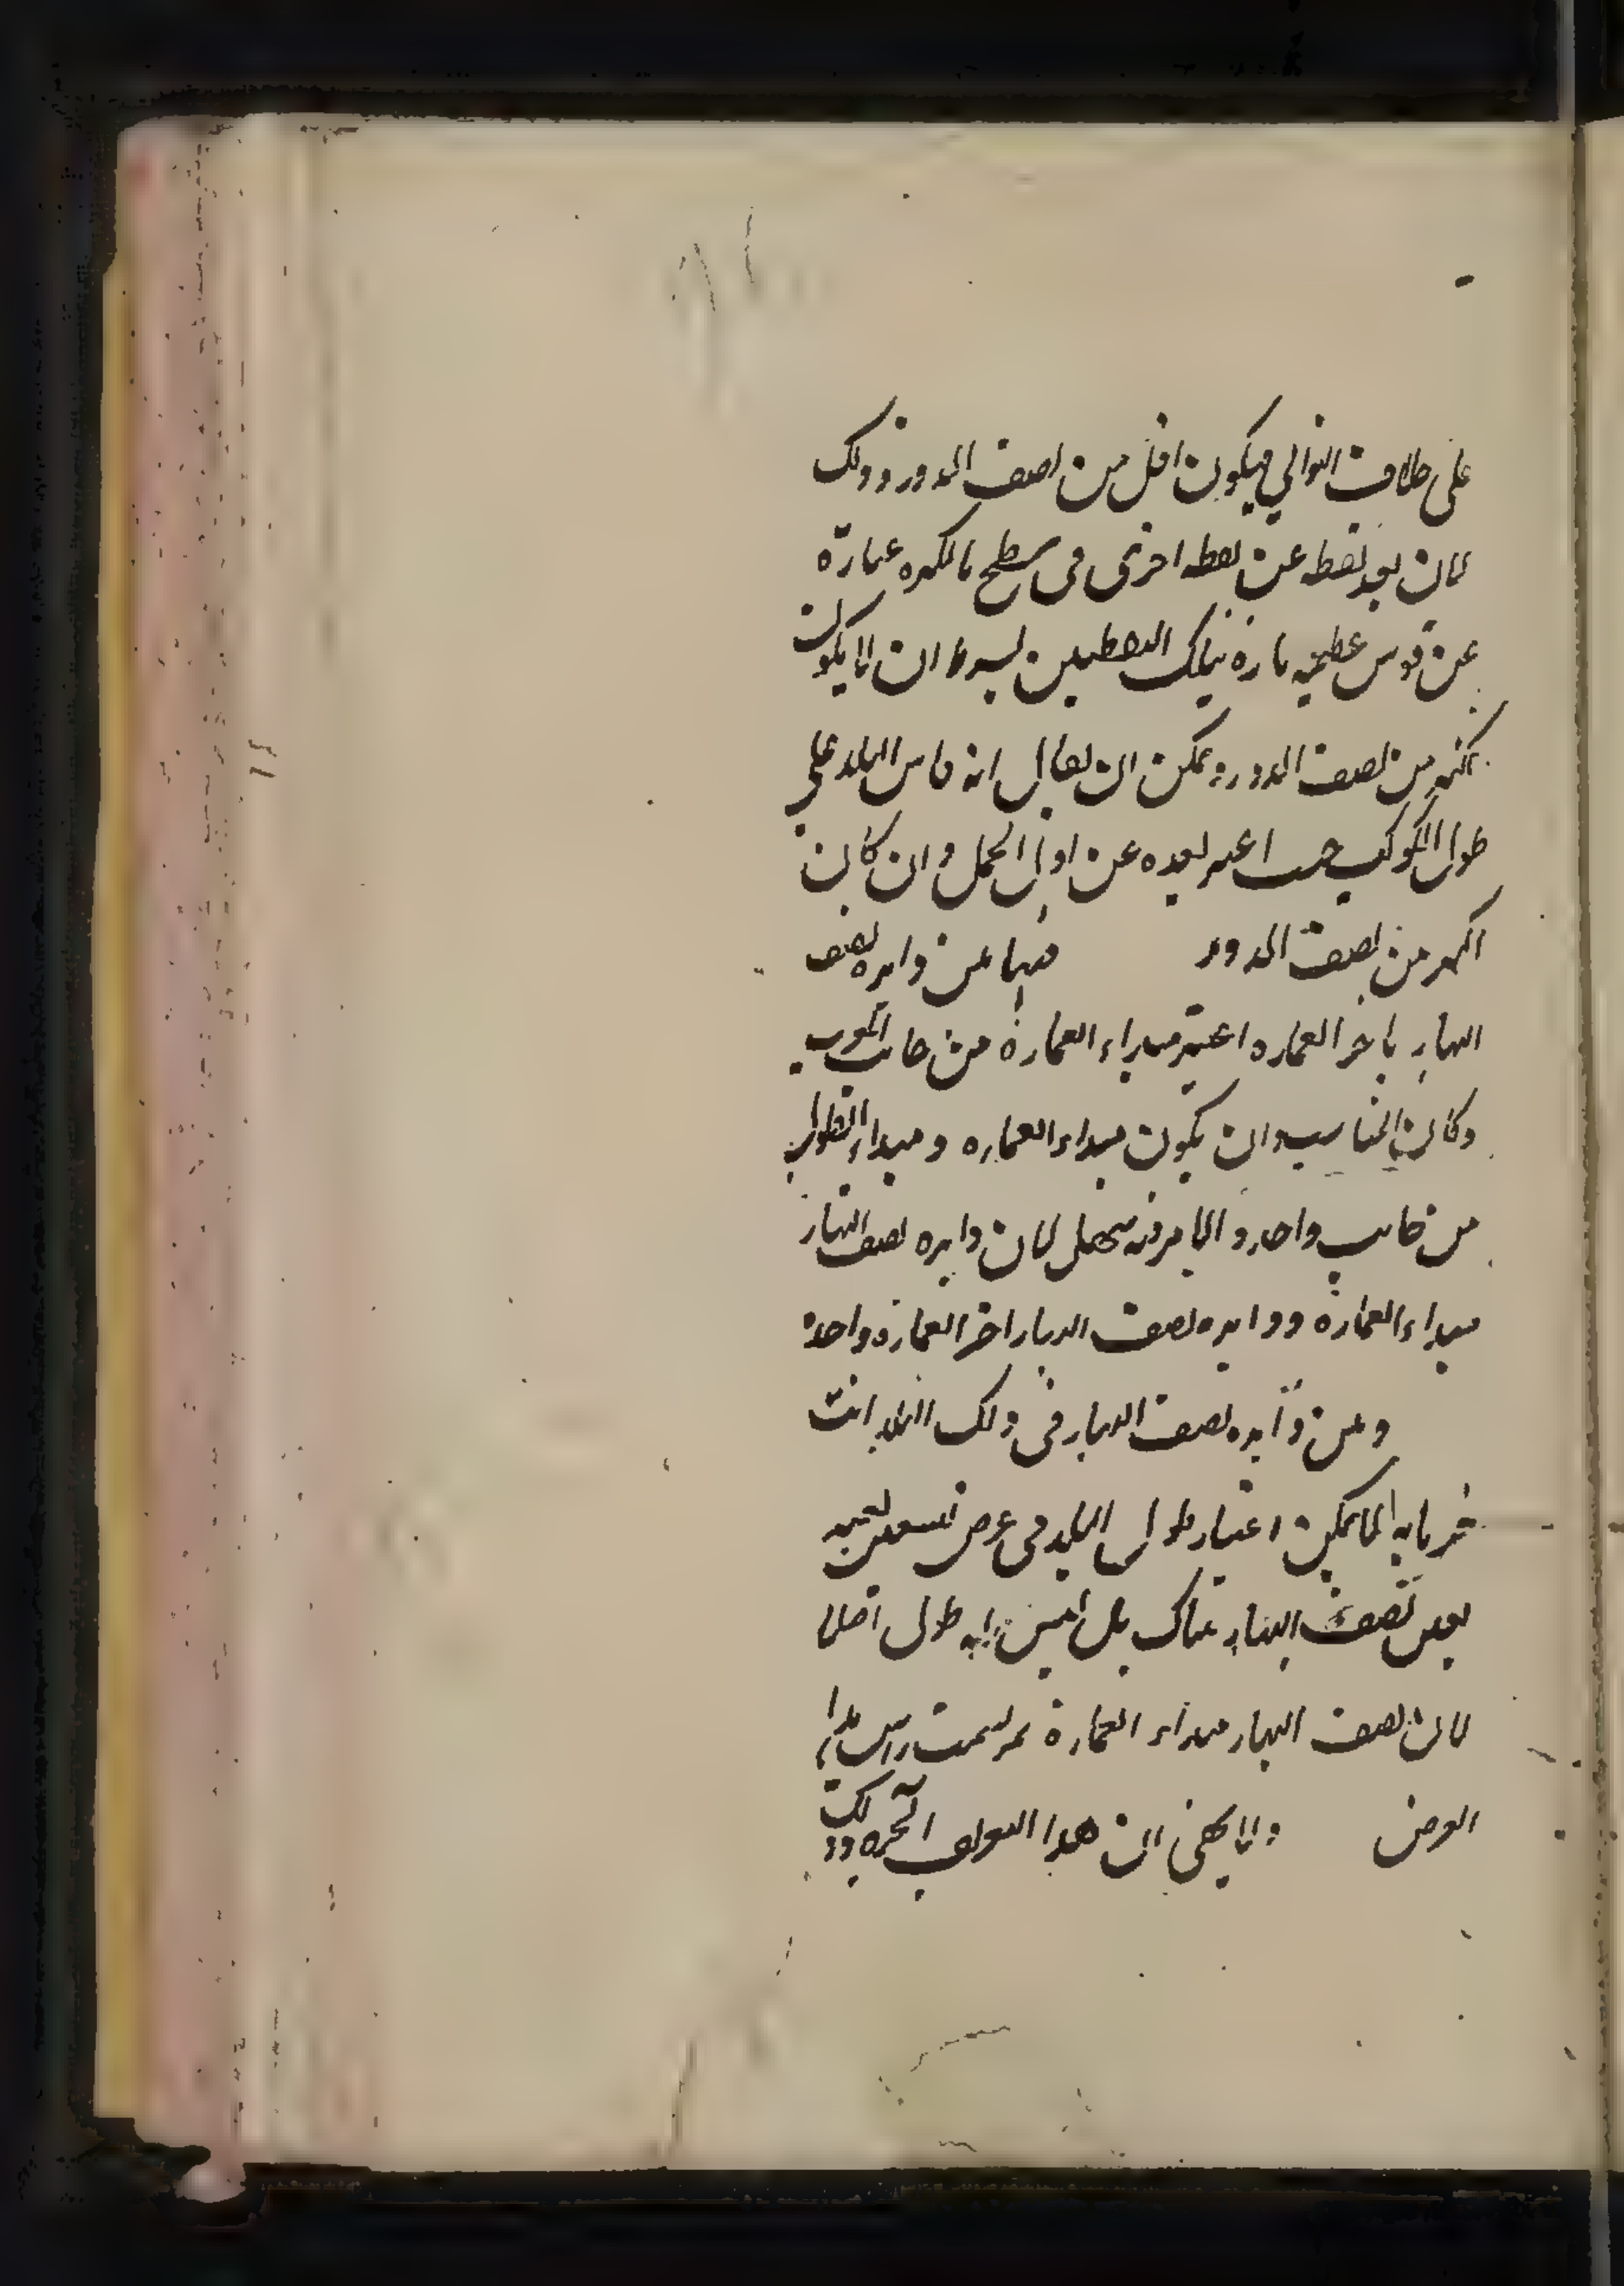 على خلاف التوالي فيكون اقل من نصف الدور وذلك
لان بعد نقطه عن نقطه اخرى فى سطح الكره عبارة
عن قوس عظيمه مارة بتلك النقطتين بشرط ان لا يكون
اكثر من نصف الدور ويمكن ان يقال انه قاس البلد على
طول الكوكب حيث اعتبر بعده عن اول الحمل وان كان
اكثر من نصف الدور فيما بين دايره نصف
النهار باخر العماره اعتبر مبداء العمارة من جانب المغرب
وكان المناسب ان يكون مبداء العماره ومبداء الطول
من جانب واحد والامر فيه سهل لان دايره نصف النهار
مبداء العمارة ودايره نصف النهار اخر العمارة واحدة
وبين دايره نصف النهار فى ذلك البلد انت
خبر بانه لا يمكن اعتبار طول البلد فى عرض تسعين لعدم
تعين نصف النهار هناك بل ليس له طول اصلا
لان نصف النهار مبداء العمارة يمر بسمت راس هذا
العرض ولا يخفى ان هذا التعريف